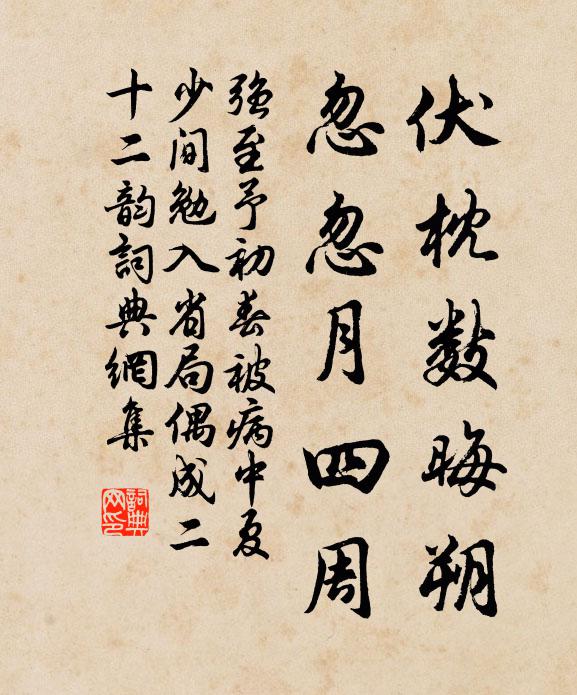 伏枕数晦朔
忽忽月四周
强至予初春被病中夏
少间勉入省局偶成二
十二韵詞典網集
詞典
网印